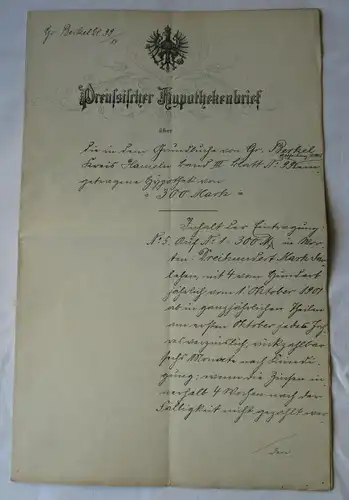 Gr. Berkel Bl. 99
Preussischer Hypothekenbrief
über
die in dem Grundbuche von Gr. Berkel
Kreis Hameln Band III Blatt No
getragene Hypothek von
" 300 Mark "
Inhalt der Eintragung:
No 5. Auf No 1. 300 M, in Wor-
ten: Dreihundert Mark Dar-
lehen, mit 4 vom Hundert
jährlich vom 1. Oktober 1901
ab in ganzjährlichen Theilen
am ersten Oktober jedes Jah-
res verzinslich, rückzahlbar
sechs Monate nach Kündi-
gung; wenn die Zinsen in-
nerhalb 4 Wochen nach der
Fälligkeit nicht gezahlt wer
den